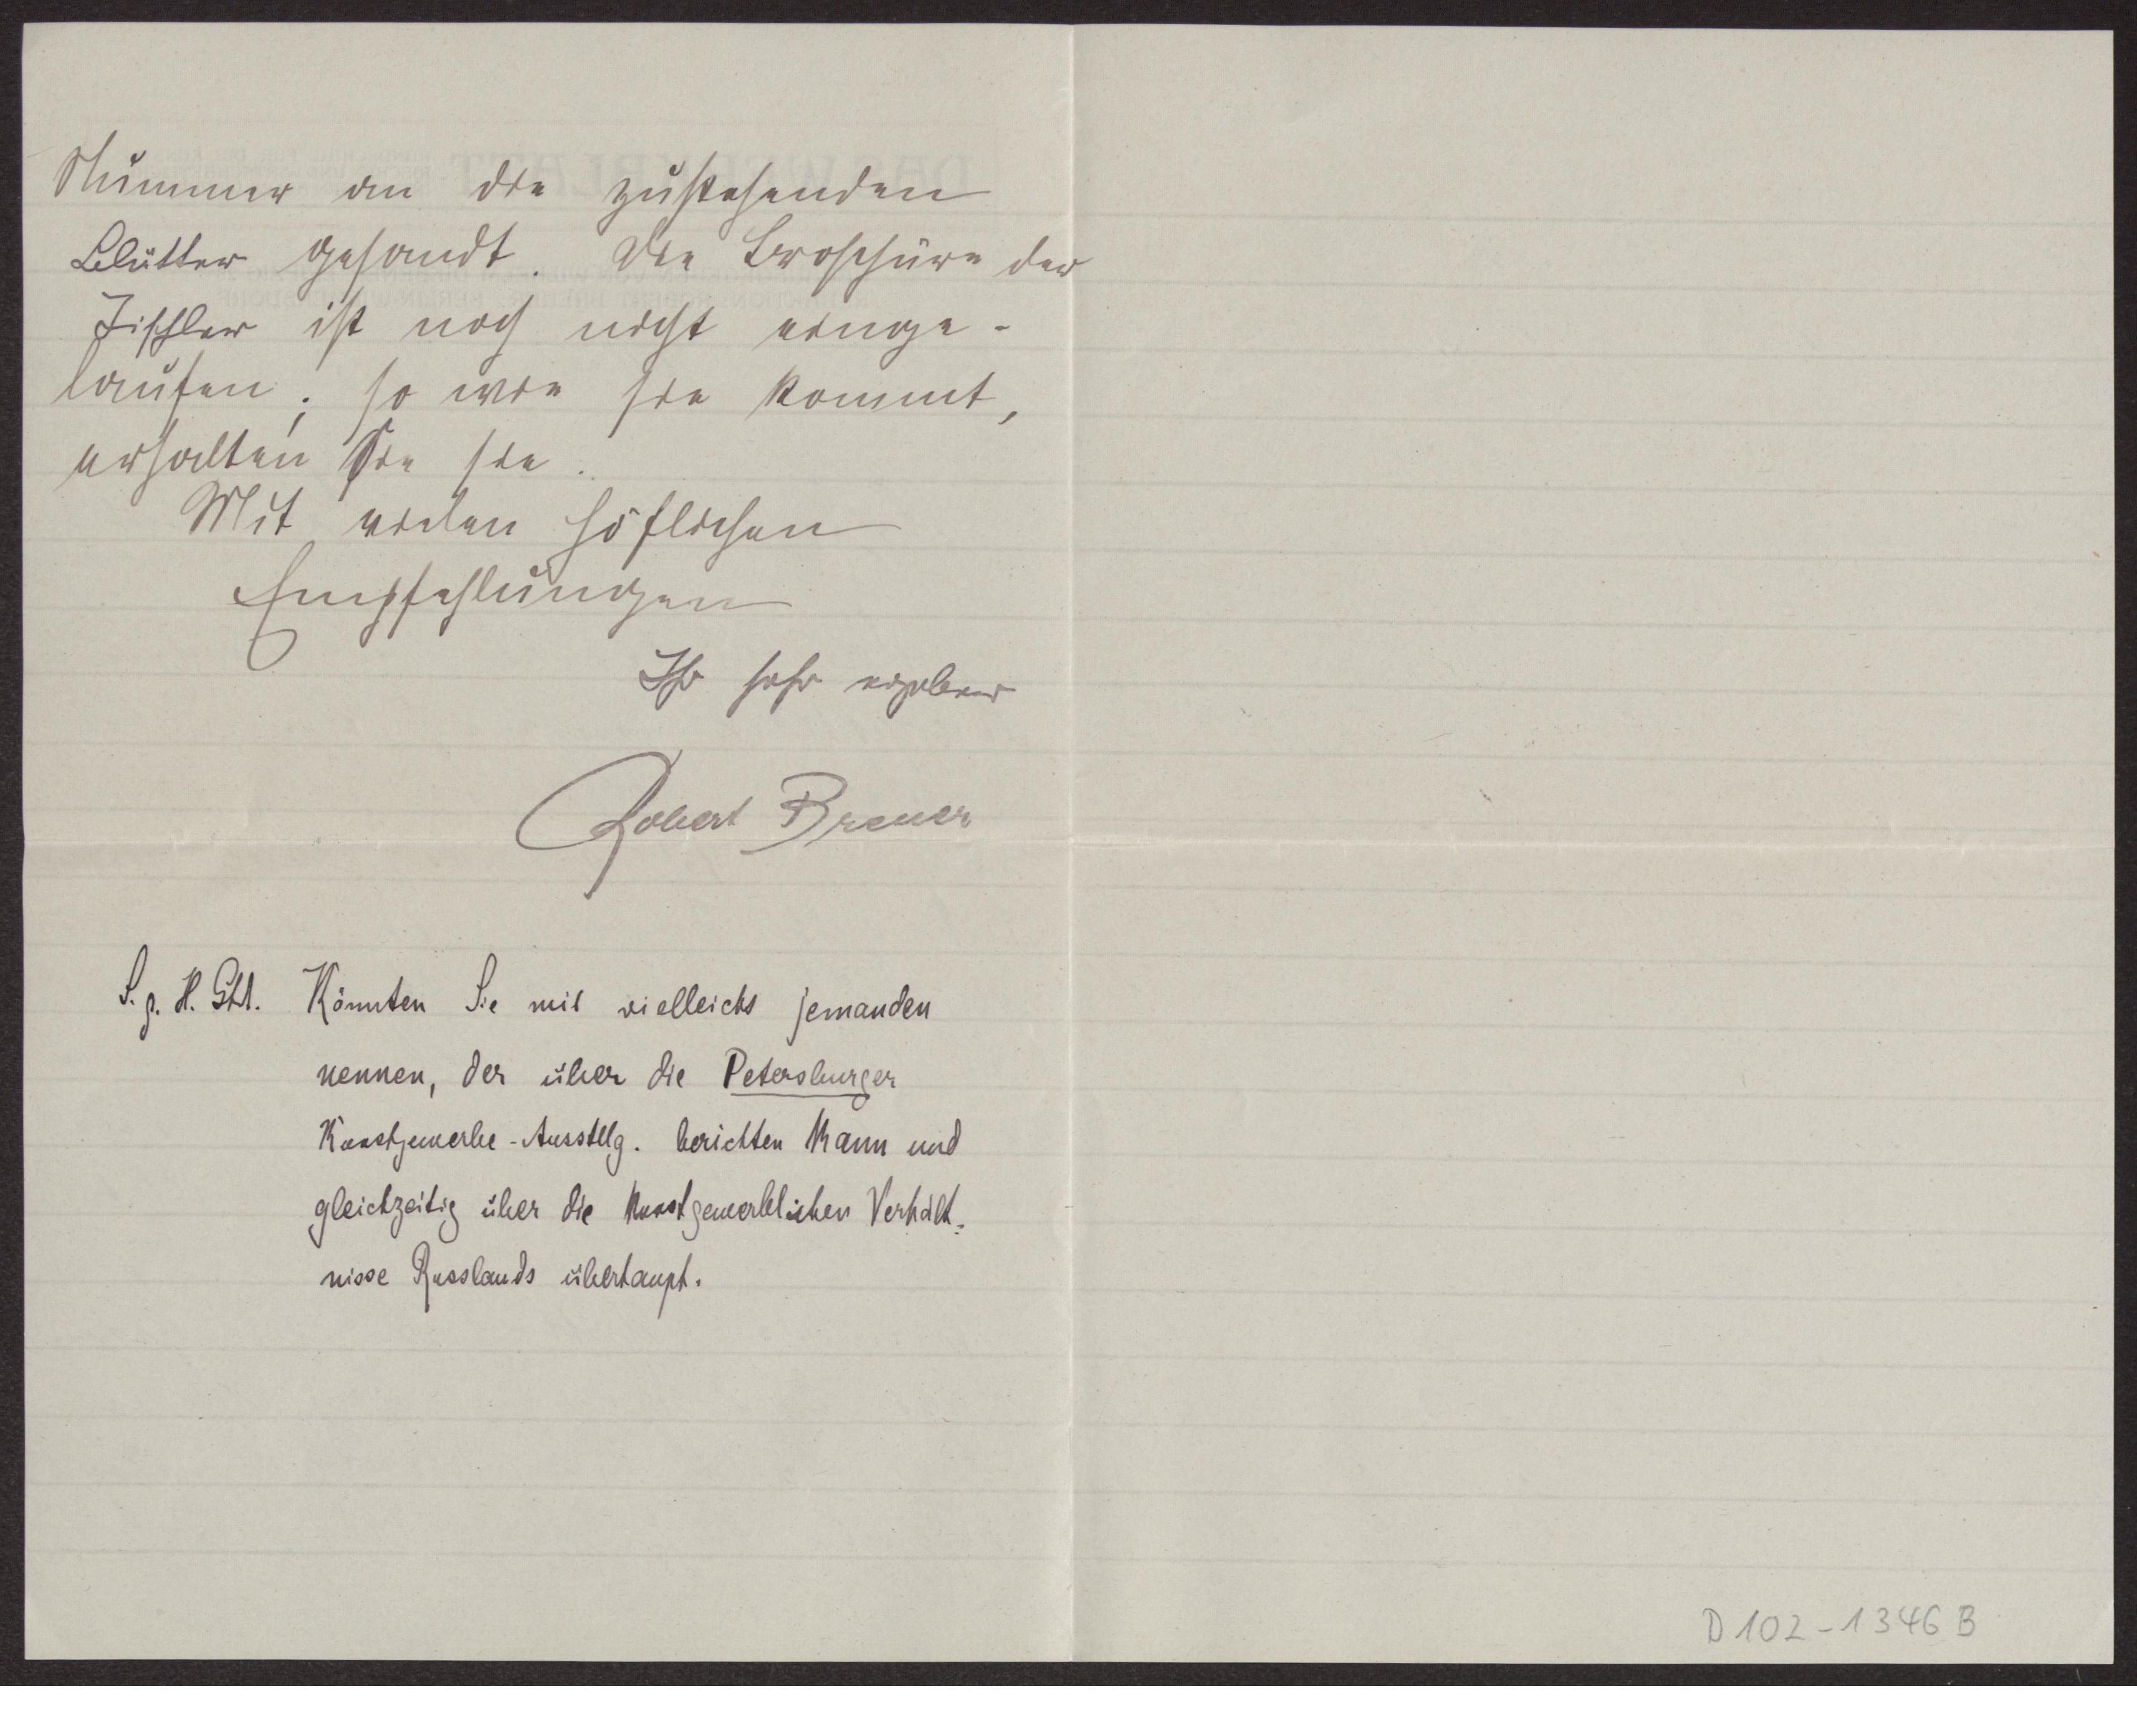 Nummer an die zustehenden
Blätter gesandt. Die Broschüre der
Tischler ist noch nicht einge-
laufen; so wie sie kommt,
erhalten Sie sie.
Mit vielen höflichen
Empfehlungen
Ihr sehr ergebener
Robert Breuer
S. g. H. Könnten Sie mir vielleicht jemanden
nennen, der über die Petersburger
Kunstgewerbe-Ausstllg. berichten kann und
gleichzeitig über die kunstgewerblichen Verhält-
nisse Russlands überhaupt.
D 102-1346 B